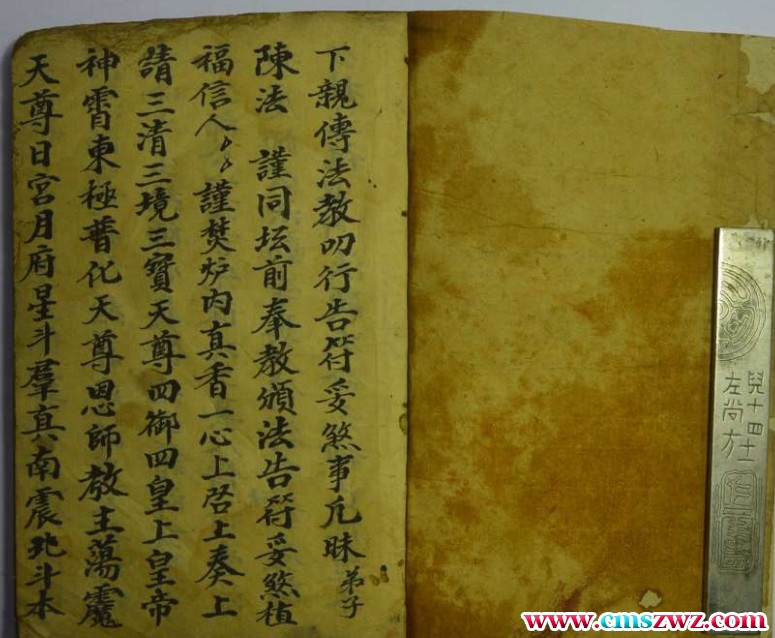 下親傳法教叨行告符妥煞事凢昧弟子
陳法 謹同坛前奉教頒法告符妥煞植
福信人 謹焚炉内真香一心上启上奏上
請三清三境三寶天尊四御四皇上皇帝
神霄東極普化天尊恩師教主蕩魔
天尊日宮月府星斗羣真南震北斗本
左尚方
www.cmszwz.com